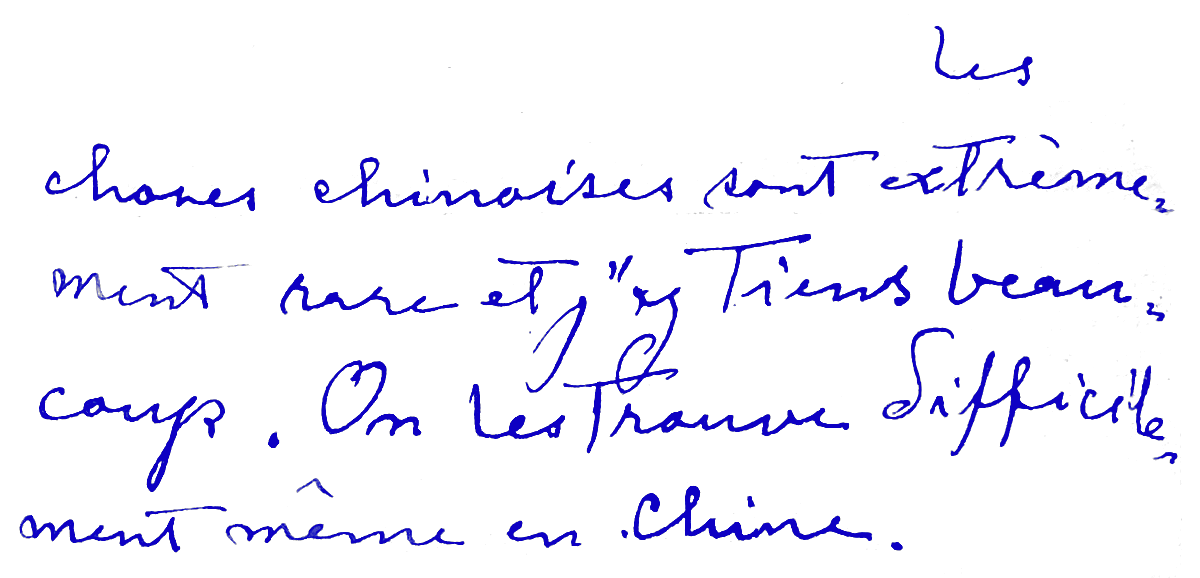 Les
choses chinoises sont extrème-
ment rare et j'y Tiens beau-
coup. On les Trouve difficile-
ment même en Chine.